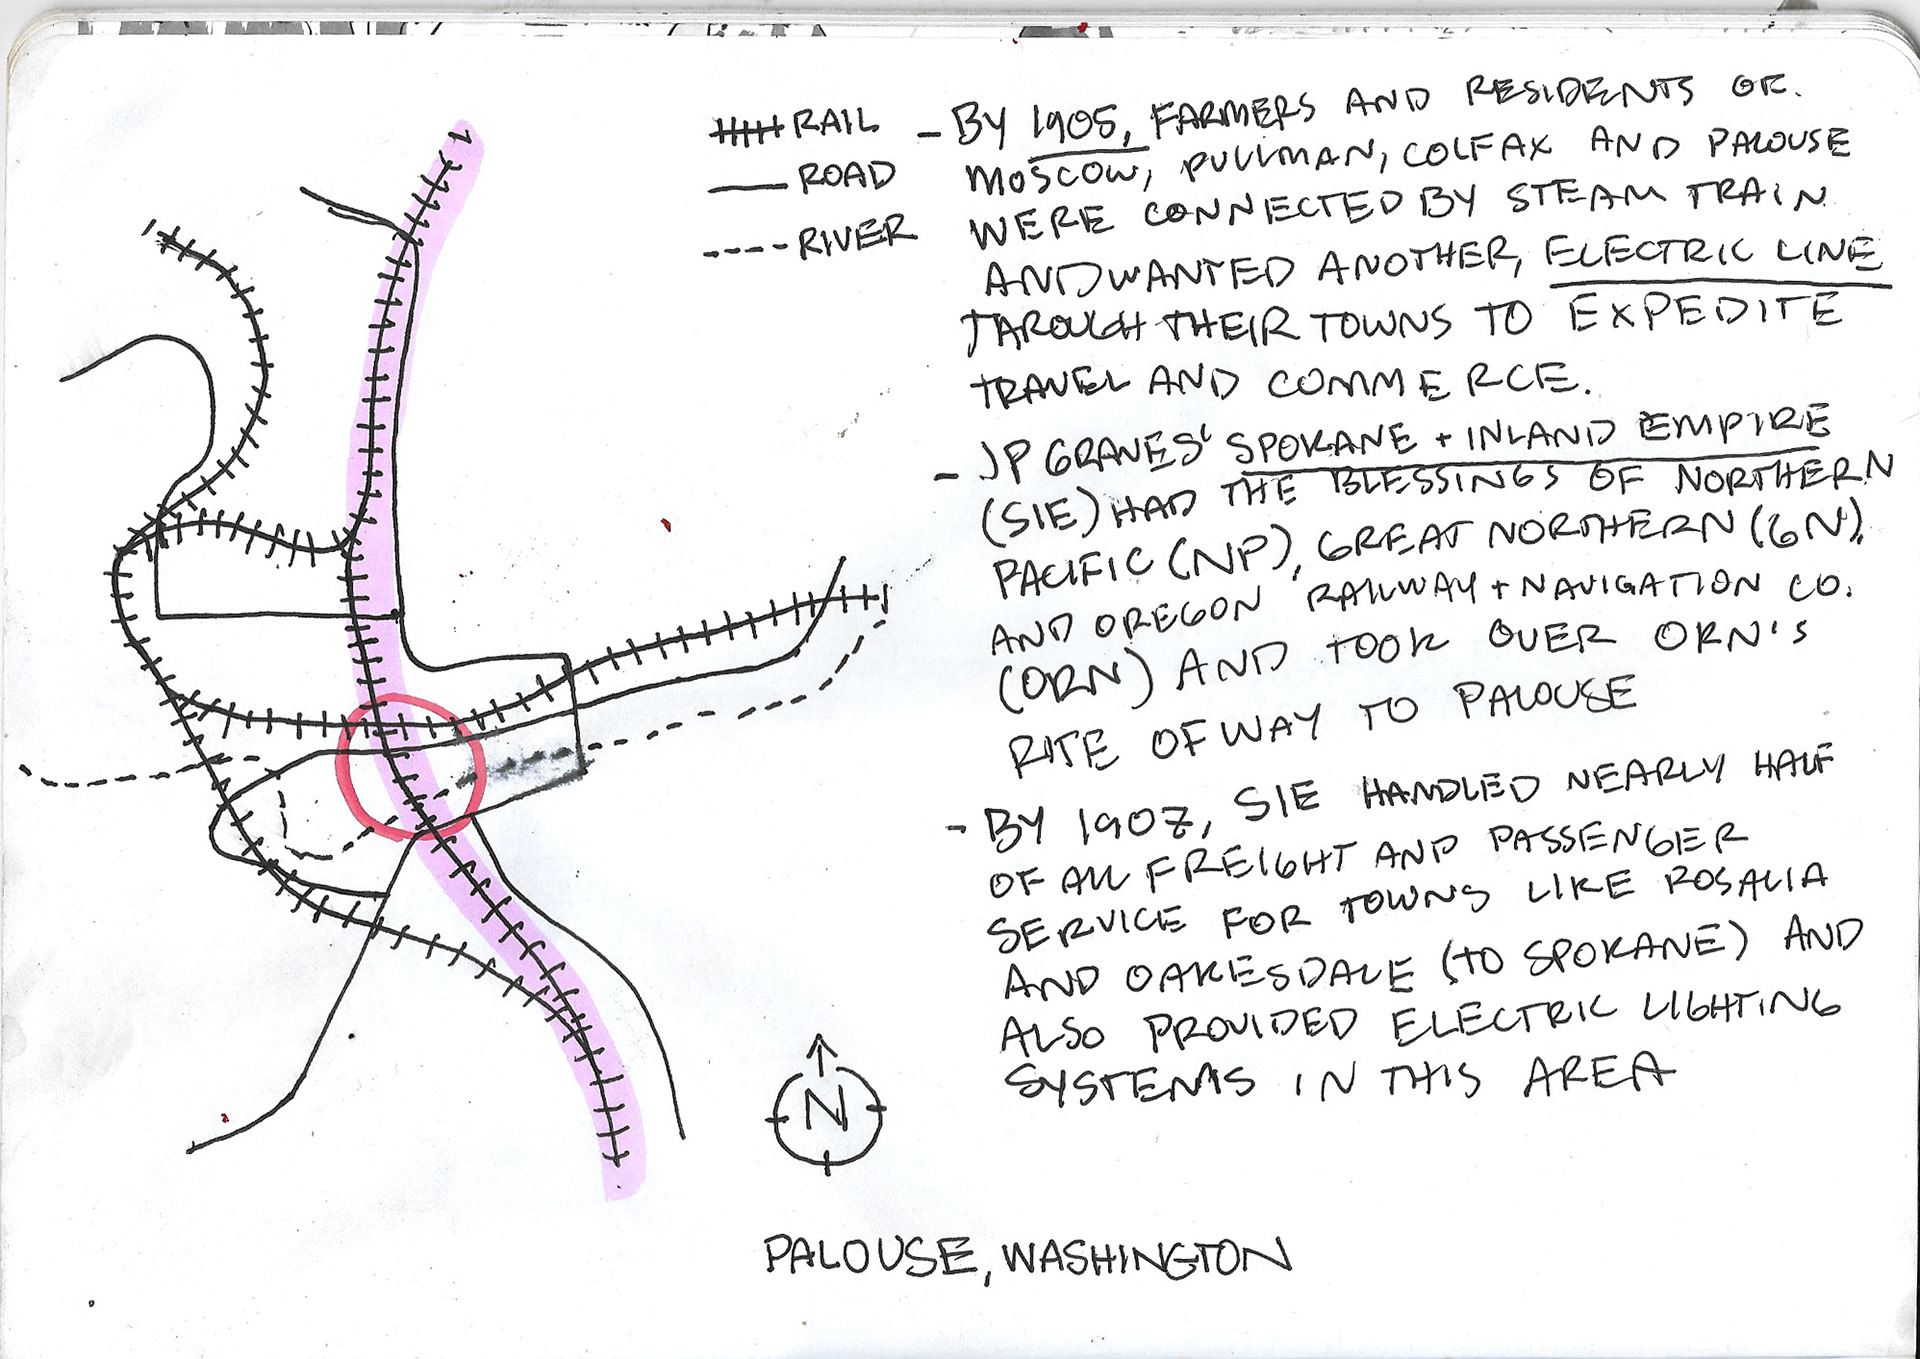 RAIL
ROAD
RIVER
- BY 1905, FARMERS AND RESIDENTS OF
MOSCOW, PULLMAN, COLFAX AND PALOUSE
WERE CONNECTED BY STEAM TRAIN
AND WANTED ANOTHER, ELECTRIC LINE
THROUGH THEIR TOWNS TO EXPEDITE
TRAVEL AND COMMERCE.
- JP GRAVES' SPOKANE + INLAND EMPIRE
(SIE) HAD THE BLESSINGS OF NORTHERN
PACIFIC (NP), GREAT NORTHERN (GN),
AND OREGON RAILWAY + NAVIGATION CO.
(ORN) AND TOOK OVER ORN'S
RITE OF WAY TO PALOUSE
- BY 1907, SIE HANDLED NEARLY HALF
OF ALL FREIGHT AND PASSENGER
SERVICE FOR TOWNS LIKE ROSALIA
AND OAKESDALE (TO SPOKANE) AND
ALSO PROVIDED ELECTRIC LIGHTING
SYSTEMS IN THIS AREA
N
PALOUSE, WASHINGTON